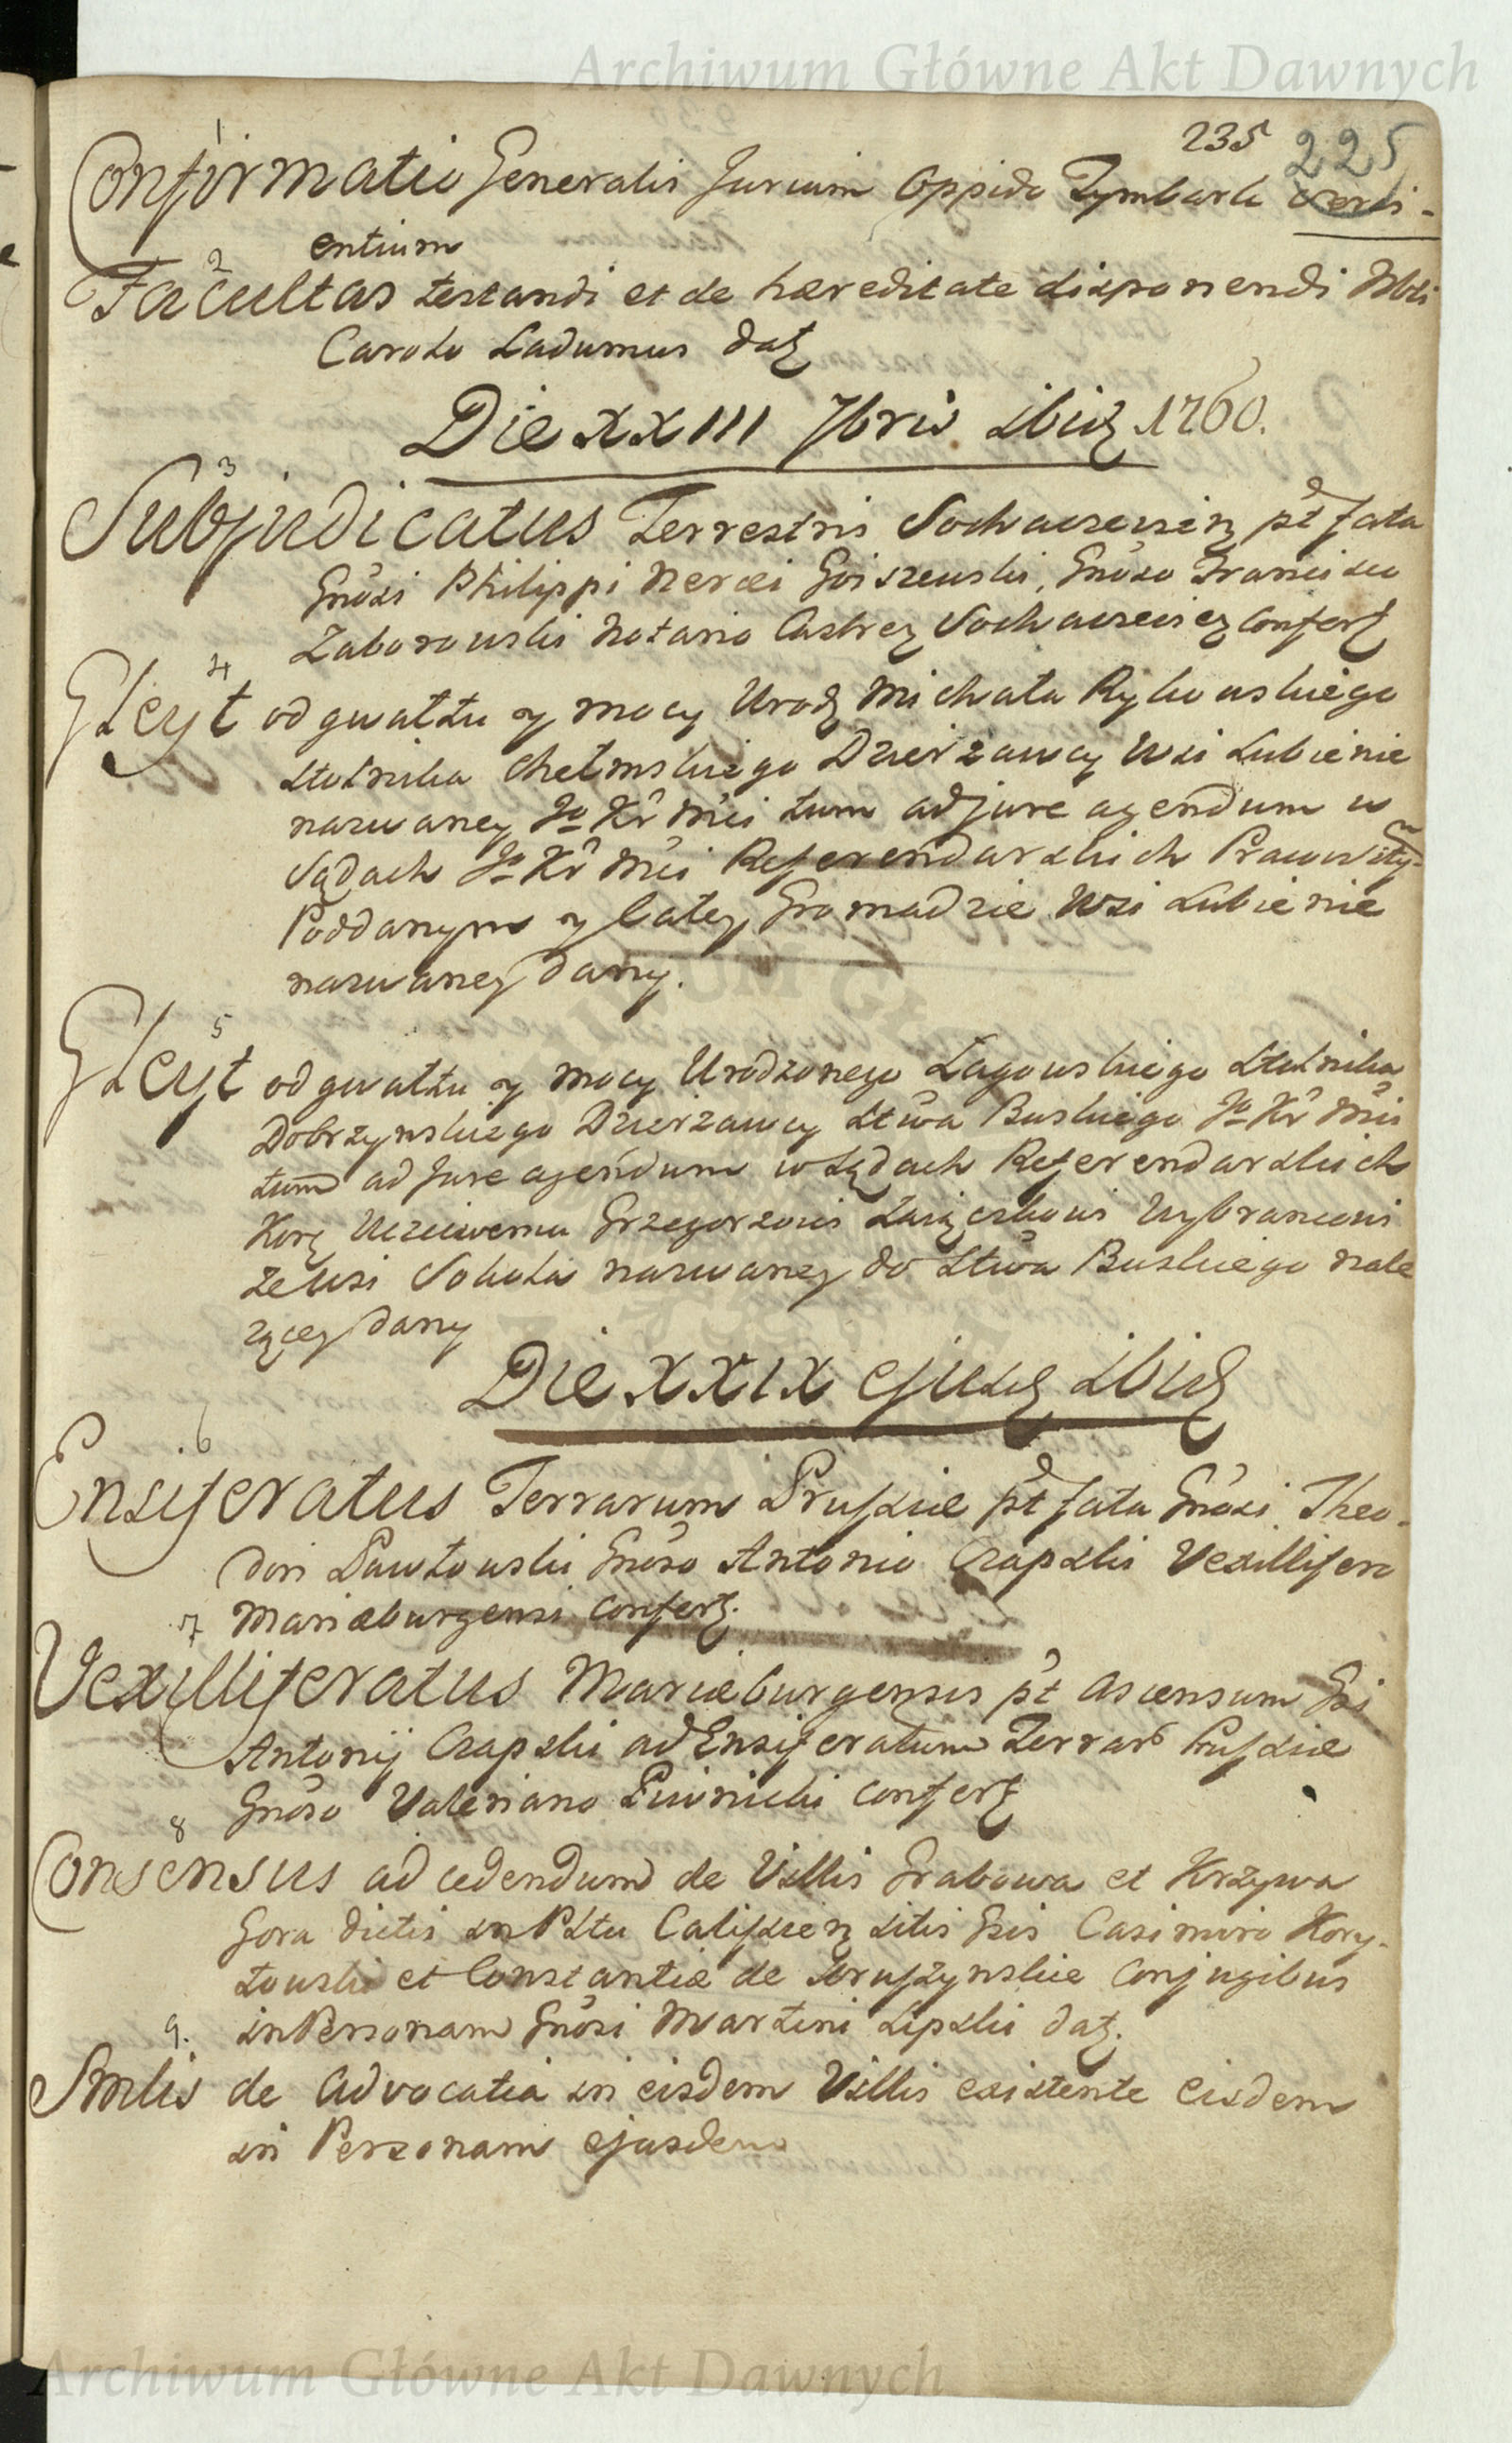 Archiwum Główne Akt Dawnych
235 225
1
Confirmatio Generalis Jurium Oppido Tymbark servi-
entium
2
Facultas testandi et de hæreditate disponendi Nbli
Carolo Ladumus datȝ
Die XXIII 7bris ibidȝ 1760.
3
Subjudicatus Terrestris Sochaczeviensȝ pt fata
Gnősi Philippi Neræi Goiszewski, Gnőso Francisco
Zaborowski Notario Castreȝ Sochaczevieȝ confertȝ
4
Gleyt od gwałtu y mocy Urodȝ Michała Rykowskiego
Stolnika Chełmskiego Dzierżawcy Wsi Lubienie
nazwaney Jo Kr Mci tum ad jure agendum w
Sądach Jo Kr Mci Referendarskich
Poddanym y Całey Gromadzie Wsi Lubienie
nazwaney dany.
5
Gleyt od gwałtu y mocy Urodzonego Łagowskiego Stolnika
Dobrzynskiego Dzierżawcy Stwa Buskiego Jo Kr Mci
tum ad Jure agendum w Sądach Referendarskich
Korȝ Uczciwemu Grzegorzowi Wybrancowi
ze Wsi nazwaney do Stwa Buskiego nale
zącey dany
Die XXIX ejusdȝ ibidȝ
6
Ensiferatus Terrarum Prussiæ pt fata Gnősi Theo-
dori Pawłowski Gnőso Antonio Czapski Vexillifero
7 Mariæburgensi confertȝ.
Vexilliferatus Mariæburgensis pt ascensum Gsi
Antonij Czapski ad Ensiferatum Terrar Prussiæ
Gnőso Valeriano Piwnicki confertȝ
8
Consensus ad cedendum de Villis Grabowa et Krzywa
Gora dictis in Pltu Calissienȝ sitis Gsis Casimiro Kory-
towski et Constantiæ de Kruszynskie Conjugibus
9. in Personam Gnősi Martini Lipski datȝ.
Smlis de Advocatia in eisdem Villis existente eisdem
in Personam ejusdem
Archiwum Główne Akt Dawnych